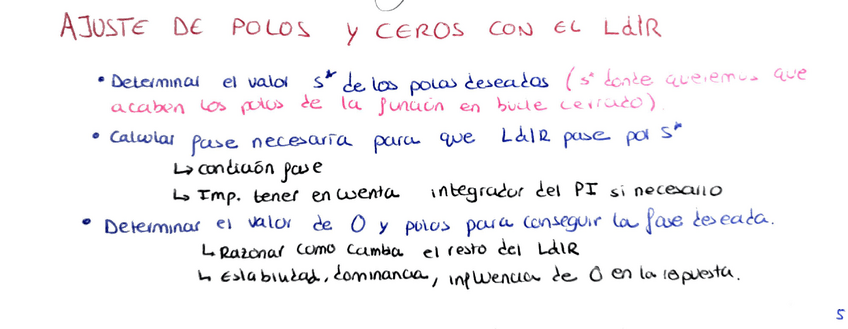 AJUSTE DE POLOS Y CEROS CON EL LdlR
• Determinar el valor s* de los polos deseados (s* donde queremos que
acaben los polos de la función en bucle cerrado).
• Calcular fase necesaria para que LdlR pase por s*
↳ condición fase
↳ Imp. tener en cuenta integrador del PI si necesario
• Determinar el valor de 0 y polos para conseguir la fase deseada.
↳ Razonar como cambia el resto del LdlR
↳ Estabilidad, dominancia, influencia de 0 en la respuesta.
5